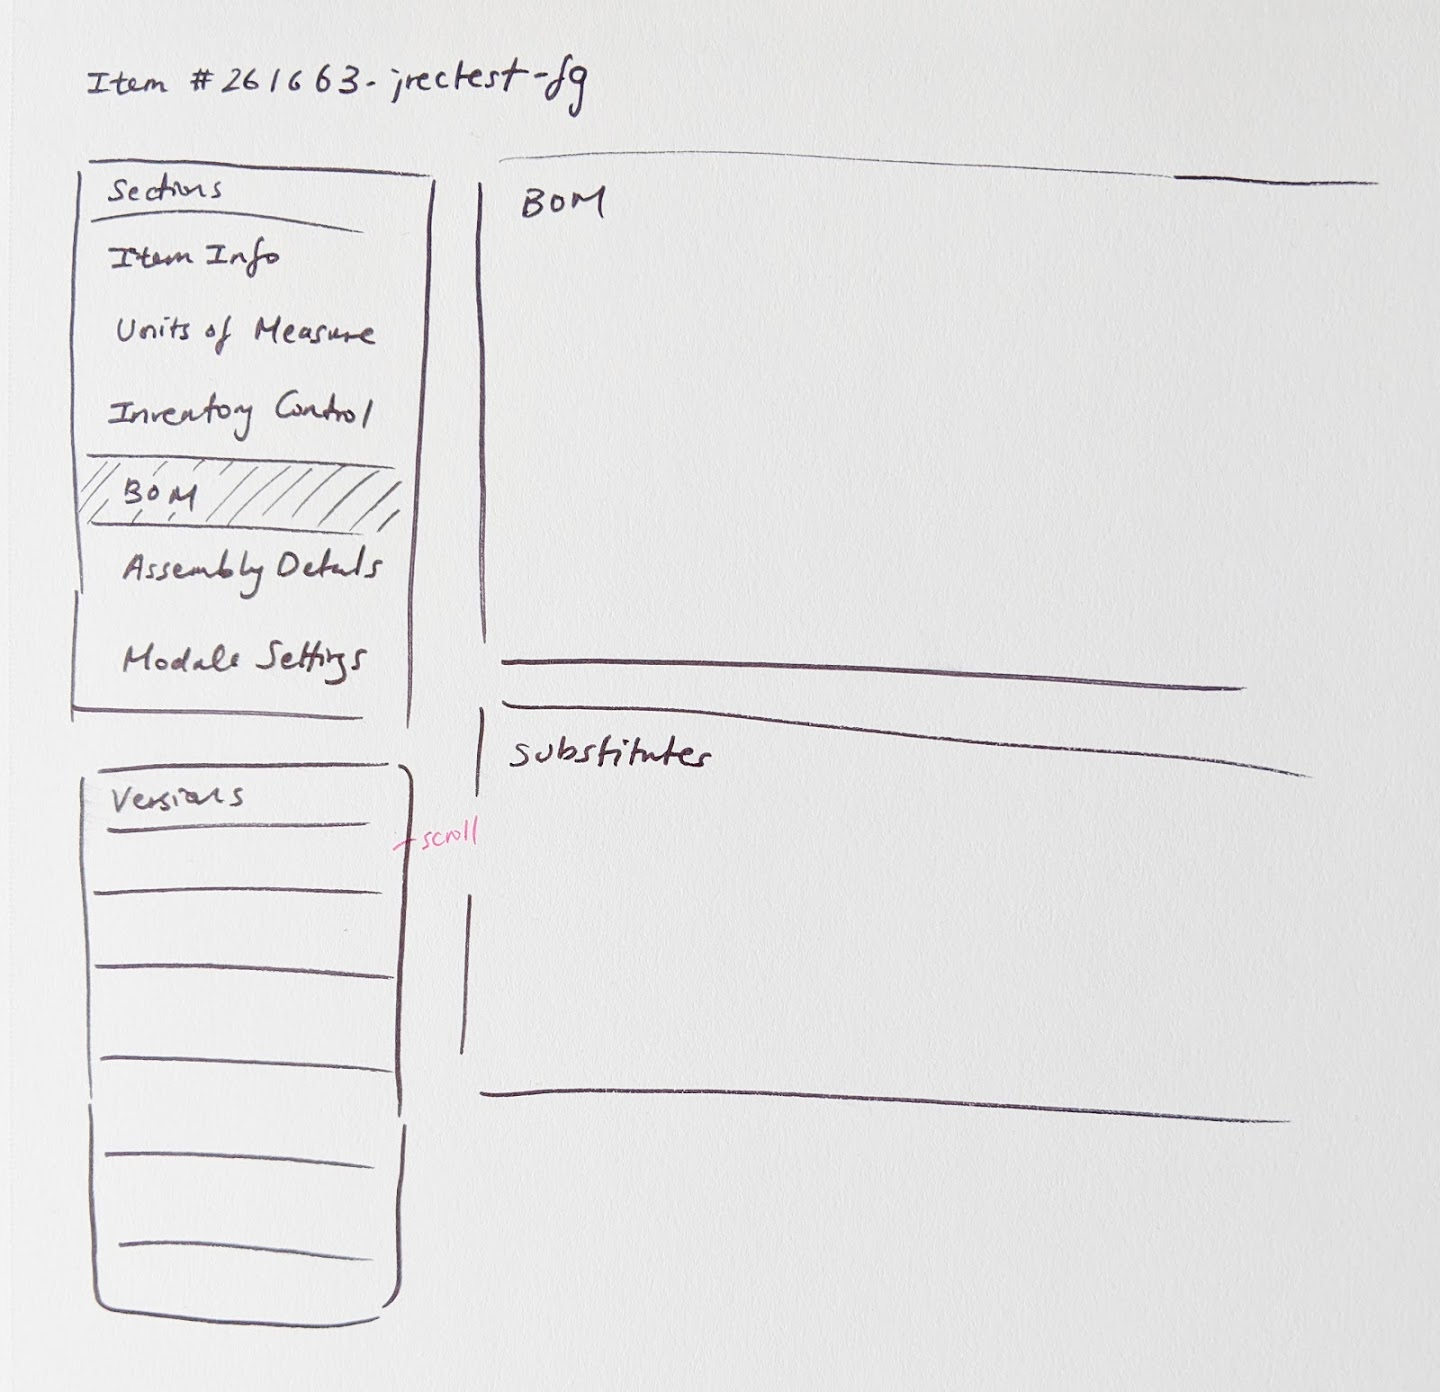 Item #261663-jrectest-fg
Sections
Item Info
Units of Measure
Inventory Control
BOM
Assembly Details
Module Settings
Versions
scroll
BOM
Substitutes